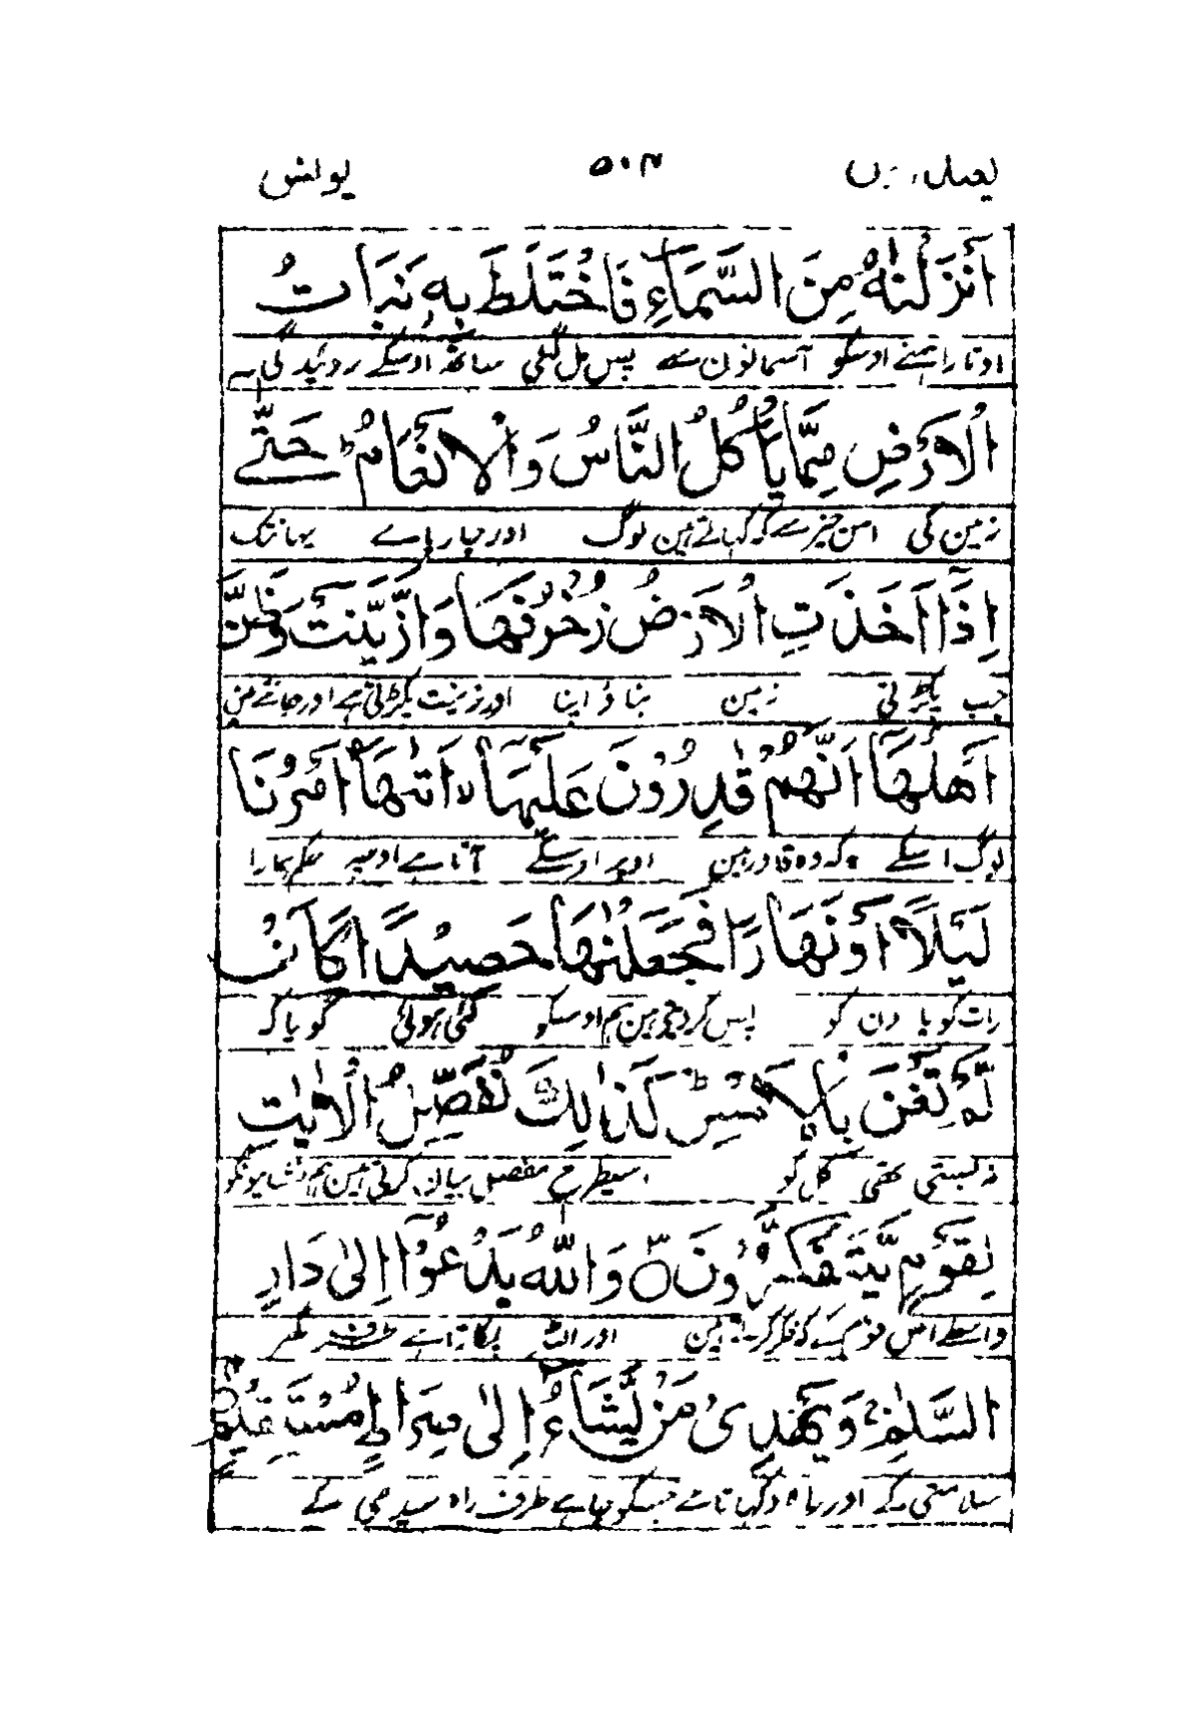 یونس ۵۰۴
اَنْزَلْنٰهُ مِنَ السَّمَآءِ فَاخْتَلَطَ بِهٖ نَبَاتُ
اوتارا ہمنے اوسکو آسمانون سے پس مل گئی ساتھ اوسکے روئیدگی
الْاَرْضِ مِمَّا يَاْكُلُ النَّاسُ وَالْاَنْعَامُ ؕ حَتّٰٓى
زمین کی اس چیز سے کہ کہاتے ہین لوگ اور چارپاے یہانتک
اِذَآ اَخَذَتِ الْاَرْضُ زُخْرُفَهَا وَازَّيَّنَتْ وَظَنَّ
جب پکڑتی زمین بناؤ اپنا اور زینت پکڑتی ہے اور جانتے ہین
اَهْلُهَآ اَنَّهُمْ قٰدِرُوْنَ عَلَيْهَآ ۙ اَتٰهَآ اَمْرُنَا
لوگ اسکے کہ وہ قادر ہین اوپر اوسکے آتا ہے اوسپہ حکم ہمارا
لَيْلًا اَوْ نَهَارًا فَجَعَلْنٰهَا حَصِيْدًا كَاَنْ
رات کو یا دن کو پس کردیتے ہین ہم اوسکو کٹی ہوئی گویا کہ
لَّمْ تَغْنَ بِالْاَمْسِ ؕ كَذٰلِكَ نُفَصِّلُ الْاٰيٰتِ
نہ بستی تھی کل کو اسیطرح مفصل بیان کرتے ہین ہم نشانیونکو
لِقَوْمٍ يَّتَفَكَّرُوْنَ ۝ وَاللّٰهُ يَدْعُوْٓا اِلٰى دَارِ
واسطے اس قوم کے کہ فکر کرتے ہین اور اللہ بلاتا ہے طرف گھر
السَّلٰمِ ؕ وَيَهْدِىْ مَنْ يَّشَآءُ اِلٰى صِرَاطٍ مُّسْتَقِيْمٍ
سلامتی کے اور راہ دکہاتا ہے جسکو چاہے طرف راہ سیدھی کے